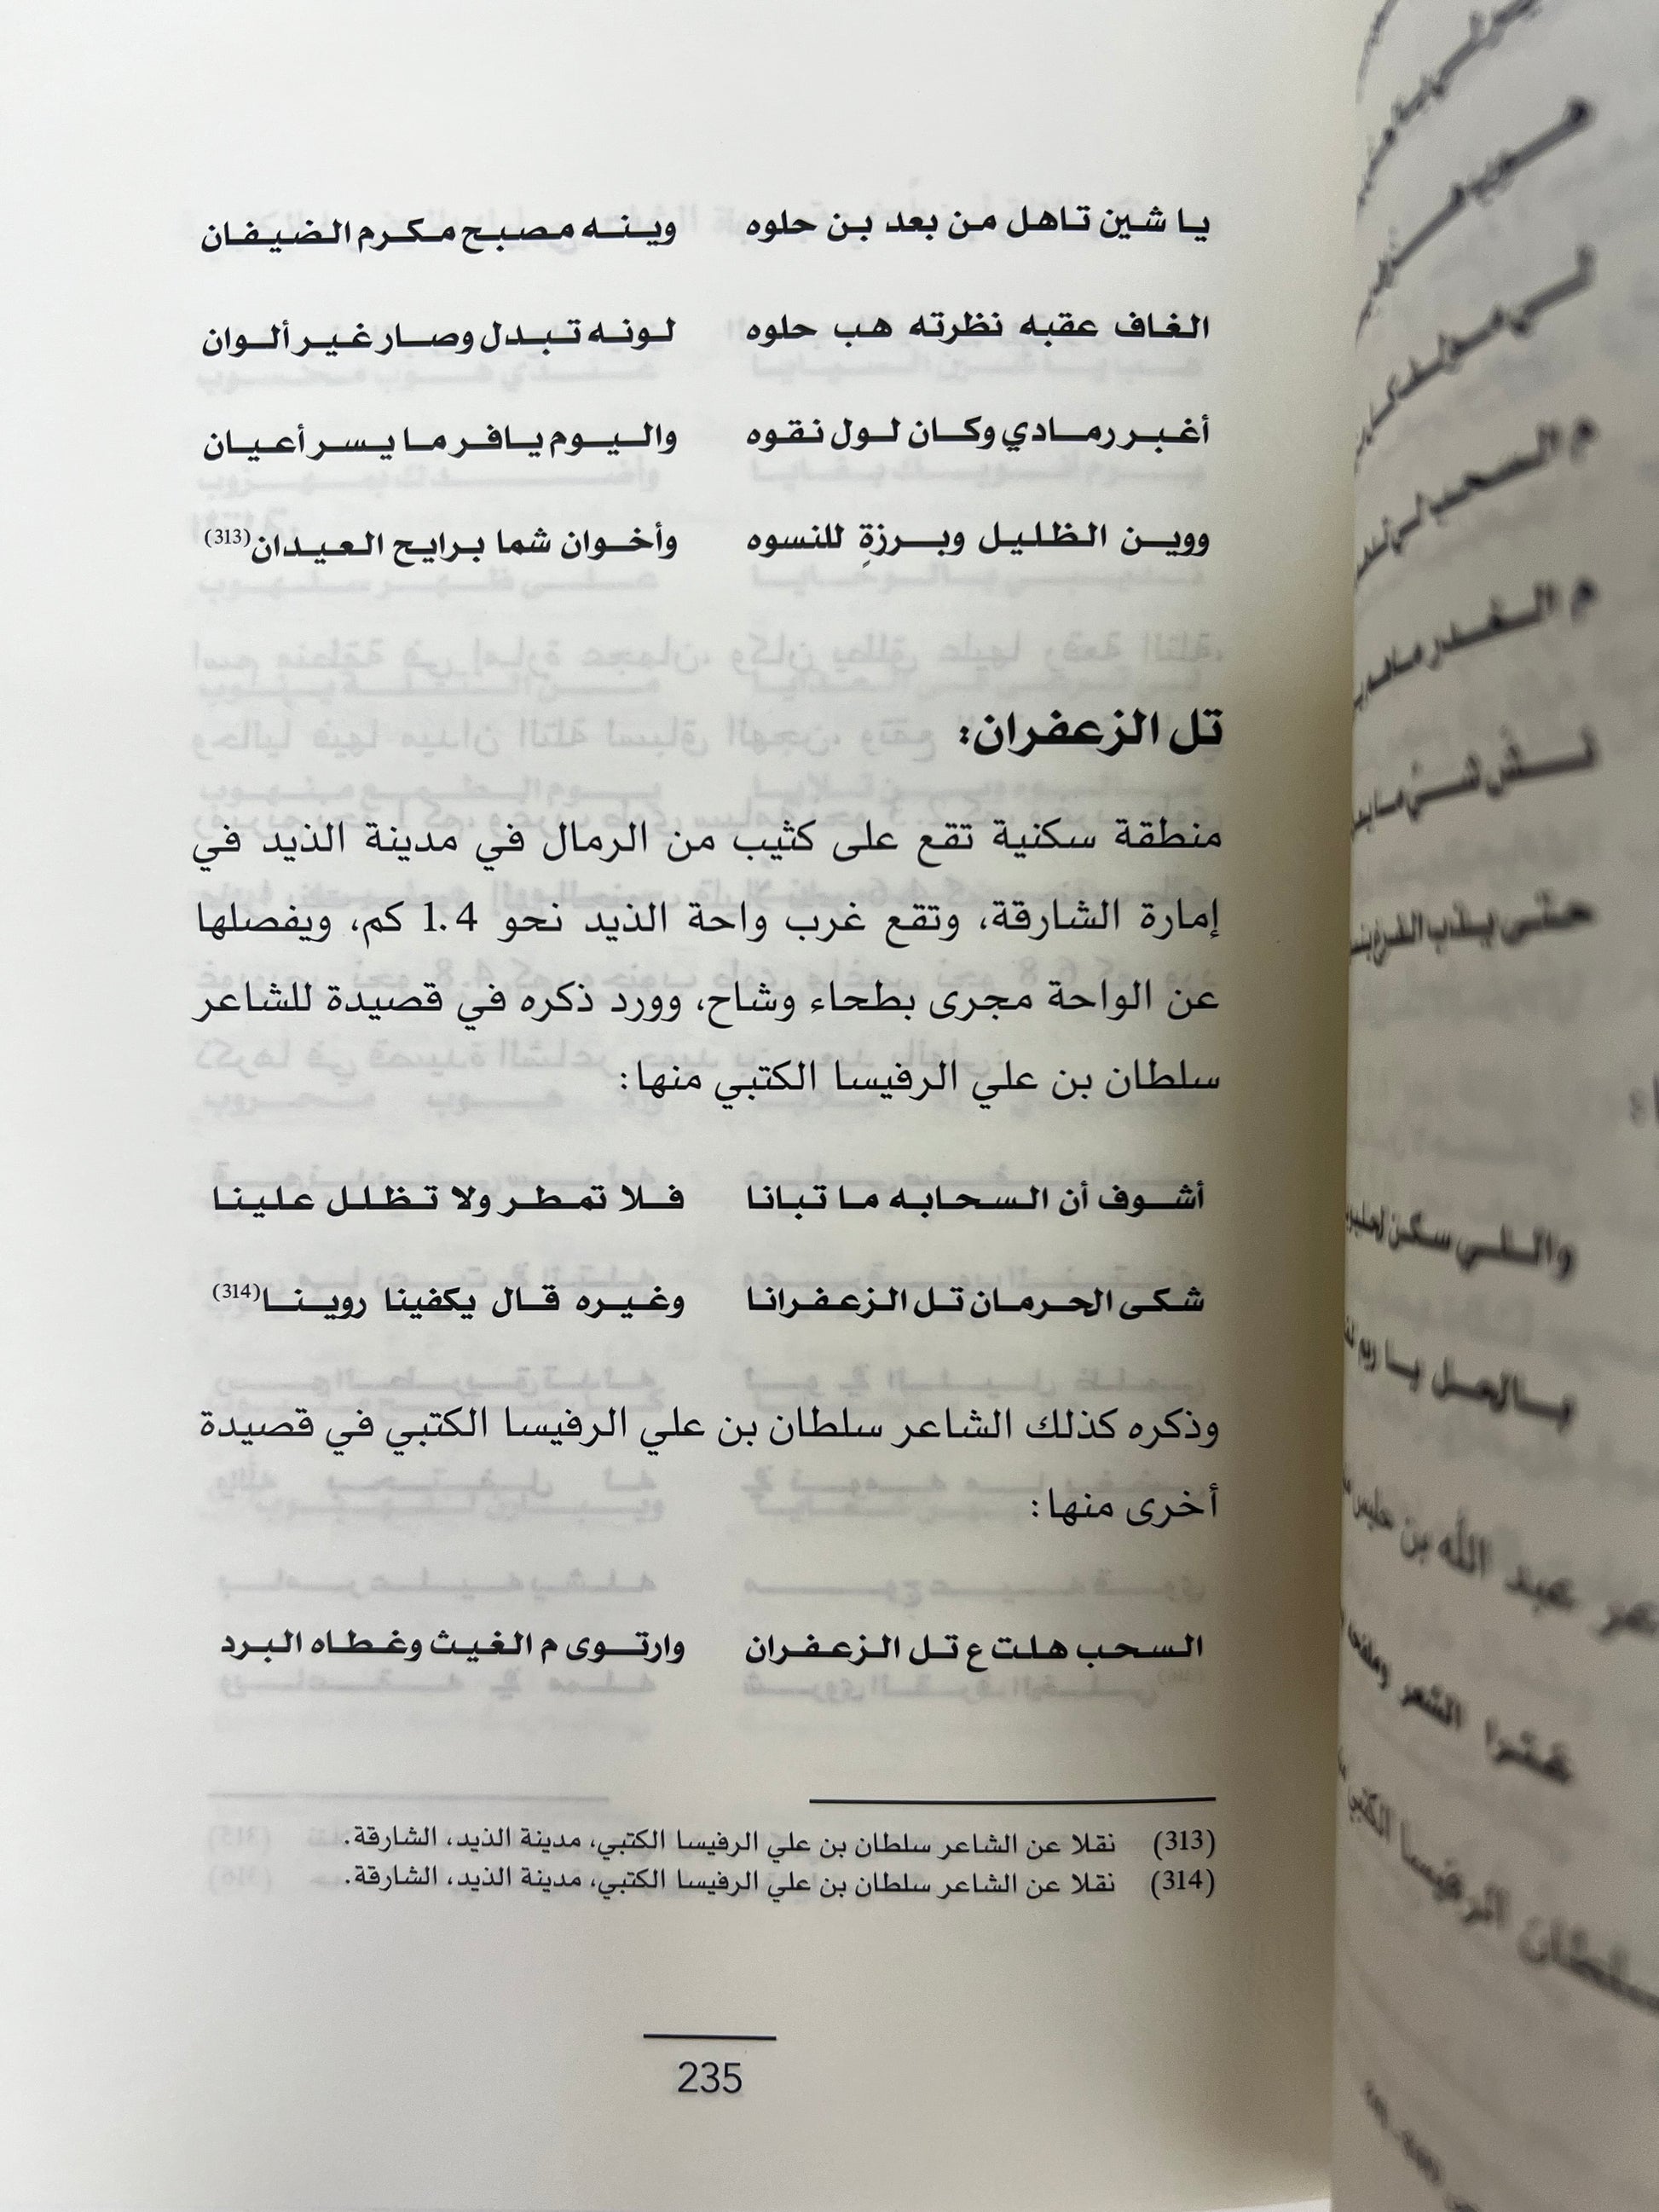 يا شين تاهل من بعد بن حلوه وينه مصبح مكرم الضيفان
الغاف عقبه نظرته هب حلوه لونه تبدل وصار غير ألوان
أغبر رمادي وكان لول نقوه واليوم يافر ما يسر أعيان
ووين الظليل وبرزةٍ للنسوه وأخوان شما برايح العيدان(313)
تل الزعفران:
منطقة سكنية تقع على كثيب من الرمال في مدينة الذيد في
إمارة الشارقة، وتقع غرب واحة الذيد نحو 1.4 كم، ويفصلها
عن الواحة مجرى بطحاء وشاح، وورد ذكره في قصيدة للشاعر
سلطان بن علي الرفيسا الكتبي منها:
أشوف أن السحابه ما تبانا فلا تمطر ولا تظلل علينا
شكى الحرمان تل الزعفرانا وغيره قال يكفينا روينا(314)
وذكره كذلك الشاعر سلطان بن علي الرفيسا الكتبي في قصيدة
أخرى منها:
السحب هلت ع تل الزعفران وارتوى م الغيث وغطاه البرد
(313) نقلا عن الشاعر سلطان بن علي الرفيسا الكتبي، مدينة الذيد، الشارقة.
(314) نقلا عن الشاعر سلطان بن علي الرفيسا الكتبي، مدينة الذيد، الشارقة.
235